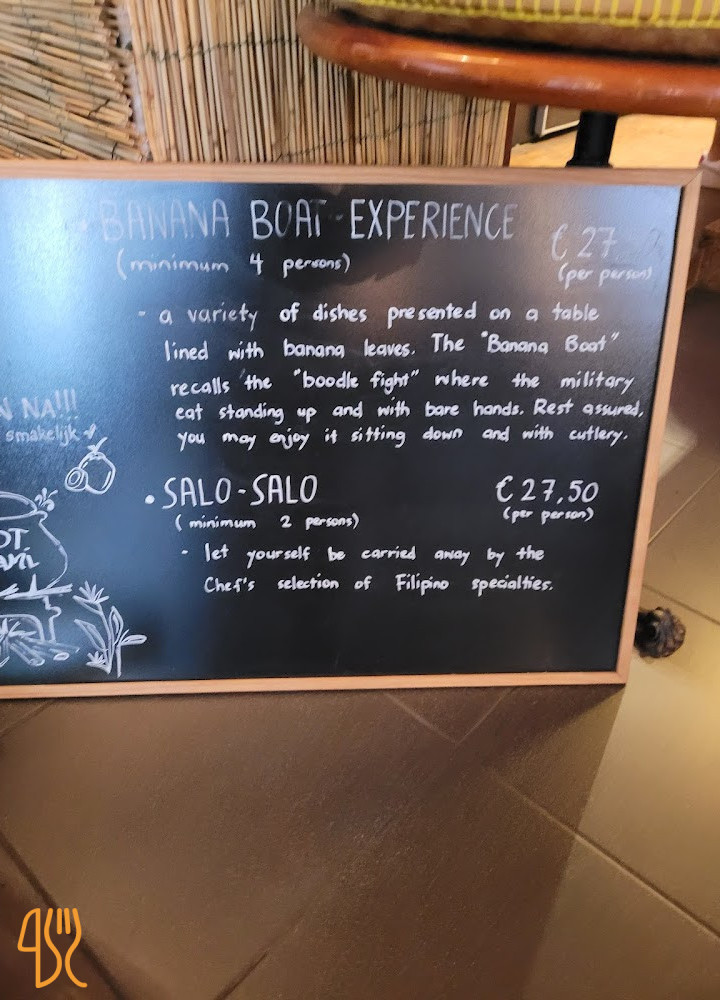 BANANA BOAT - EXPERIENCE
€ 27
(minimum 4 persons)
(per person)
- a variety of dishes presented on a table
lined with banana leaves. The "Banana Boat"
recalls the "boodle fight" where the military
eat standing up and with bare hands. Rest assured,
you may enjoy it sitting down and with cutlery.
N NA!!!
smakelijk
• SALO-SALO
€ 27,50
(minimum 2 persons)
(per person)
- let yourself be carried away by the
Chef's selection of Filipino specialties.
OT